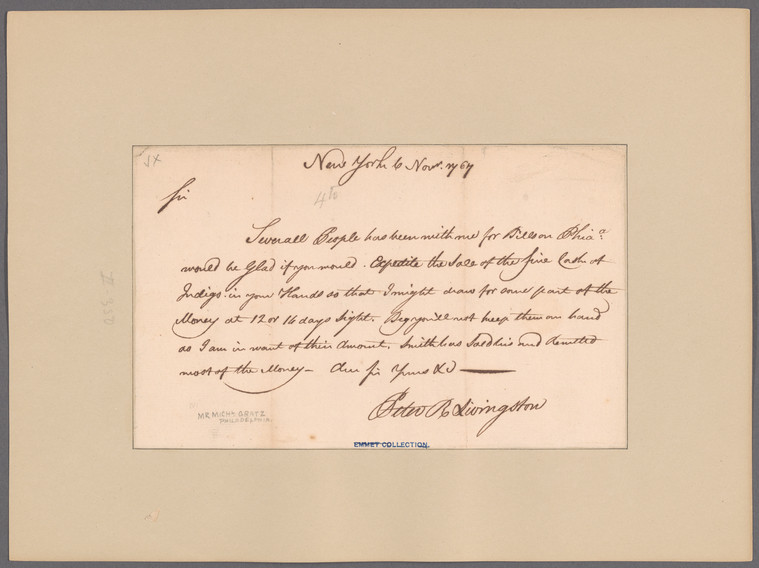 New York 6 Novr. 1767
Sir
Severall People has been with me for Bills on Phiaa
would be Glad if you would. Expedite the Sale of the five Casks of
Indigo. in your Hands so that I might draw for some part of the
Money at 12 or 16 days Sight. Beg you'll not keep them on hand
as I am in want of their Amount. Smith has Sold his and remitted
most of the Money — Am Sir Yours &c
Peter R Livingston
MR MICHL GRATZ
PHILADELPHIA.
EMMET COLLECTION.